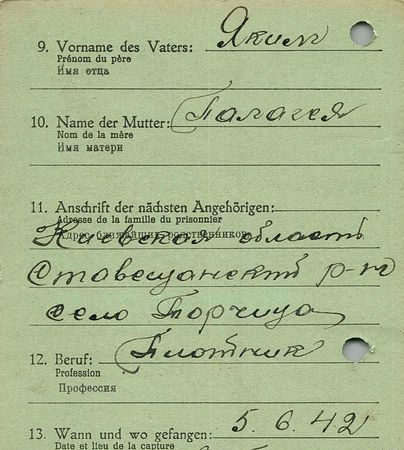 9. Vorname des Vaters: Яким
Prénom du père
Имя отца
10. Name der Mutter: Палагея
Nom de la mère
Имя матери
11. Anschrift der nächsten Angehörigen:
Adresse de la famille du prisonnier
Адрес ближайших родственников
Киевская область
Ставещанский р-н
село Торчица
12. Beruf: Плотник
Profession
Профессия
13. Wann und wo gefangen: 5.6.42
Date et lieu de la capture